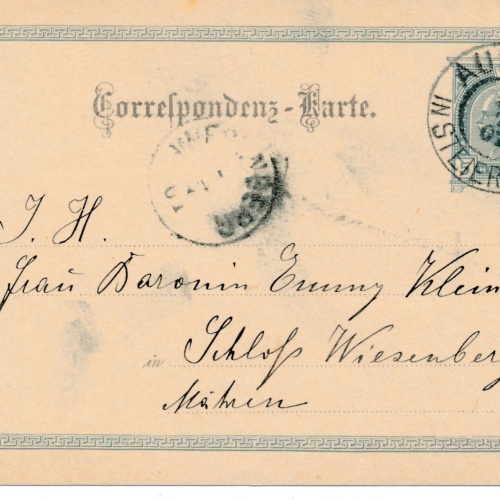 Correspondenz-Karte.
AU
IN STEIER
J. H.
Frau Baronin Emmy Klein
in Schloß Wiesenberg
Mähren